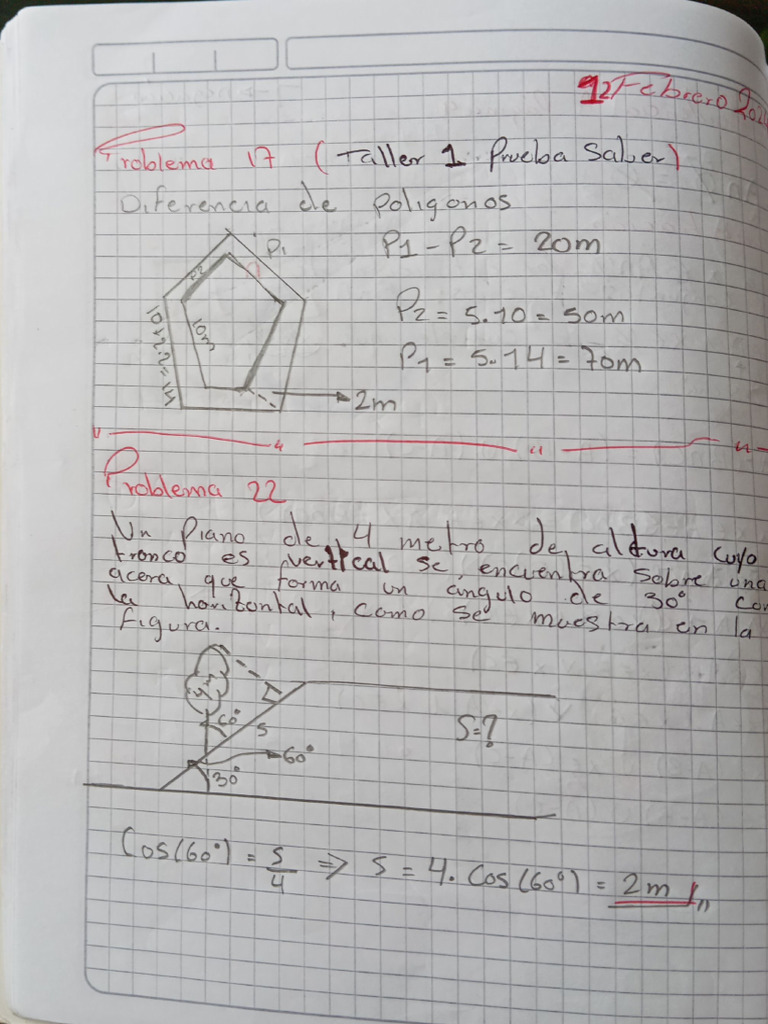 12 Febrero
Problema 17 (Taller 1 Prueba Saber)
Diferencia de poligonos
P1
P1 - P2 = 20m
P2
10m
P2 = 5.10 = 50m
P1 = 5.14 = 70m
2m
Problema 22
Un Piano de 4 metro de altura cuyo
tronco es vertical se encuentra sobre una
acera que forma un angulo de 30° con
la horizontal, como se muestra en la
figura.
60°
S
S=?
60°
30°
Cos(60°) = S/4 ⇒ S = 4. Cos(60°) = 2m